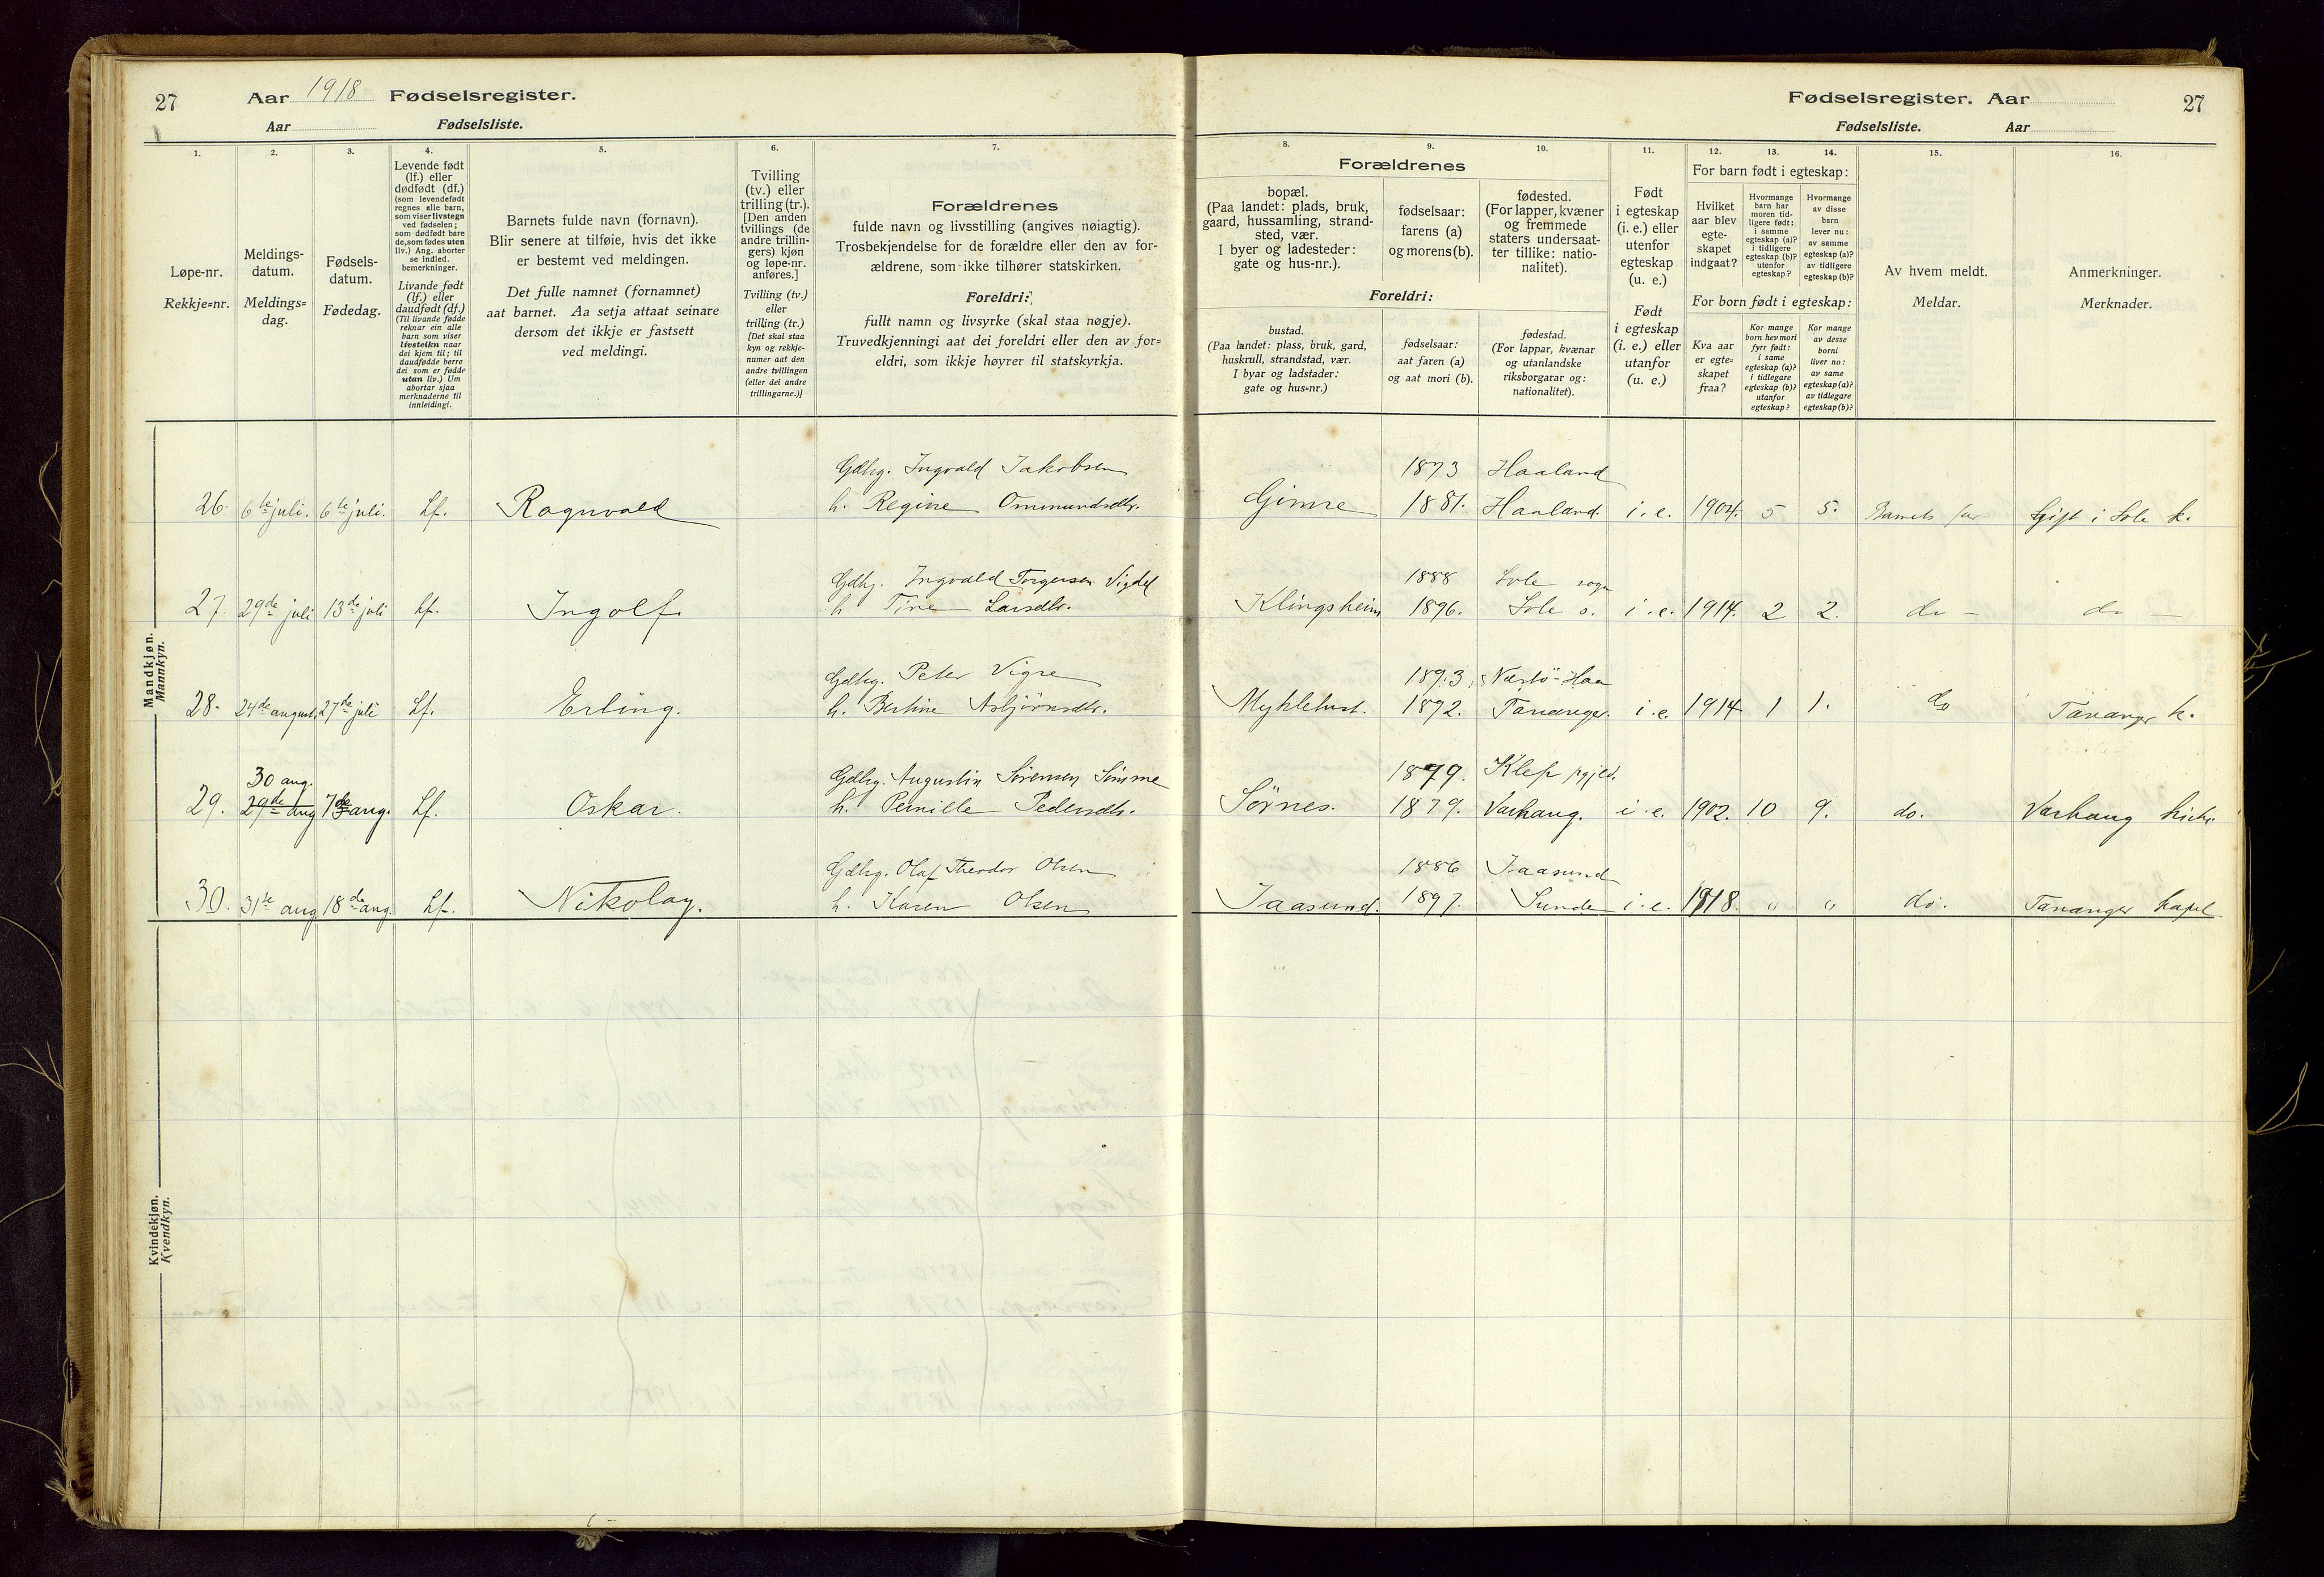 27 Aar 1918 Fødselsregister.
Aar Fødselsliste.
1.
Løpe-nr.
Rekkje=nr.
2.
Meldings-
datum.
Meldings=
dag.
3.
Fødsels-
datum.
Fødedag.
4.
Levende født
(lf.) eller
dødfødt (df.)
(som levendefødt
regnes alle barn,
som viser livstegn
ved fødselen;
som dødfødt bare
de, som fødes uten
liv.) Ang. aborter
se indled.
bemerkninger.
Livande født
(lf.) eller
daudfødt (df.)
(Til livande fødde
reknar ein alle
barn som viser
livsteikn naar
dei kjem til; til
daudfødde berre
dei som er fødde
utan liv.) Um
abortar sjaa
merknaderne til
innleidingi.
5.
Barnets fulde navn (fornavn).
Blir senere at tilføie, hvis det ikke
er bestemt ved meldingen.
Det fulle namnet (fornamnet)
aat barnet. Aa setja attaat seinare
dersom det ikkje er fastsett
ved meldingi.
6.
Tvilling
(tv.) eller
trilling (tr.).
[Den anden
tvillings (de
andre trillin-
gers) kjøn
og løpe-nr.
anføres.]
Tvilling (tv.)
eller
trilling (tr.)
[Det skal staa
kyn og rekkje-
numer aat den
andre tvillingen
(eller dei andre
trillingarne.)]
7.
Forældrenes
fulde navn og livsstilling (angives nøiagtig).
Trosbekjendelse for de forældre eller den av for-
ældrene, som ikke tilhører statskirken.
Foreldri:
fullt namn og livsyrke (skal staa nøgje).
Truvedkjenningi aat dei foreldri eller den av for=
eldri, som ikkje høyrer til statskyrkja.
Mandkjøn.
Mannkyn.
26. 6te juli. 6te juli. Lf. Ragnvald
Gdbg. Ingvald Jakobsen
h. Regine Ommundsdtr.
27. 29de juli 13de juli Lf. Ingolf.
Gdbg. Ingvald Torgersen Vigdel
h. Tine Larsdtr.
28. 24de august. 27de juli Lf. Erling.
Gdbg. Peter Vigre
h. Bertine Asbjörnsdtr.
30 aug.
29. 29de aug 7de aug. Lf. Oskar.
Gdbg. Augustin Sörensen Sömme
h. Pernille Pedersdtr.
30. 31te aug 18de aug. Lf. Nikolay.
Gdbg. Olaf Theodor Olsen
h. Karen Olsen
Kvindekjøn.
Kvendkyn.
Fødselsregister. Aar 27
Fødselsliste. Aar
8. 9. 10.
Forældrenes
bopæl.
(Paa landet: plads, bruk,
gaard, hussamling, strand-
sted, vær.
I byer og ladesteder:
gate og hus-nr.).
fødselsaar:
farens (a)
og morens (b).
fødested.
(For lapper, kvæner
og fremmede
staters undersaat-
ter tillike: natio-
nalitet).
Foreldri:
bustad.
(Paa landet: plass, bruk, gard,
huskrull, strandstad, vær.
I byar og ladstader:
gate og hus=nr.)
fødselsaar:
aat faren (a)
og aat mori (b).
fødestad.
(For lappar, kvænar
og utanlandske
riksborgarar og:
nationalitet).
11.
Født
i egteskap
(i. e.) eller
utenfor
egteskap
(u. e.)
Født
i egteskap
(i. e.) eller
utanfor
(u. e.)
12. 13. 14.
For barn født i egteskap:
Hvilket
aar blev
egte-
skapet
indgaat?
Hvormange
barn har
moren tid-
ligere født:
i samme
egteskap (a)?
i tidligere
egteskap (b)?
utenfor
egteskap?
Hvormange
av disse
barn
lever nu:
av samme
egteskap (a)?
av tidligere
egteskap (b)?
For born født i egteskap:
Kva aar
er egte=
skapet
fraa?
Kor mange
born hev mori
fyrr født:
i same
egteskap (a)?
i tidlegare
egteskap (b)?
utanfor
egteskap?
Kor mange
av desse
borni
liver no:
av same
egteskap (a)?
av tidlegare
egteskap (b)?
15.
Av hvem meldt.
Meldar.
16.
Anmerkninger.
Merknader.
1873 Haaland
Gimre 1881. Haaland. i. e. 1904. 5 5. Barnets far Gift i Sole k.
1888 Sole sogn
Klingsheim 1896. Sole s. i. e. 1914. 2 2. do — do —
1893. Nærbö - Haa
Myklebust. 1892. Tananger. i. e. 1914 1 1. do Tananger k.
1879. Klep pgjed.
Sörnes. 1879. Varhaug. i. e. 1902. 10 9. do. Varhaug kirke
1886 Jaasund
Jaasund. 1897. Sunde i. e. 1918. " " do. Tananger kapel